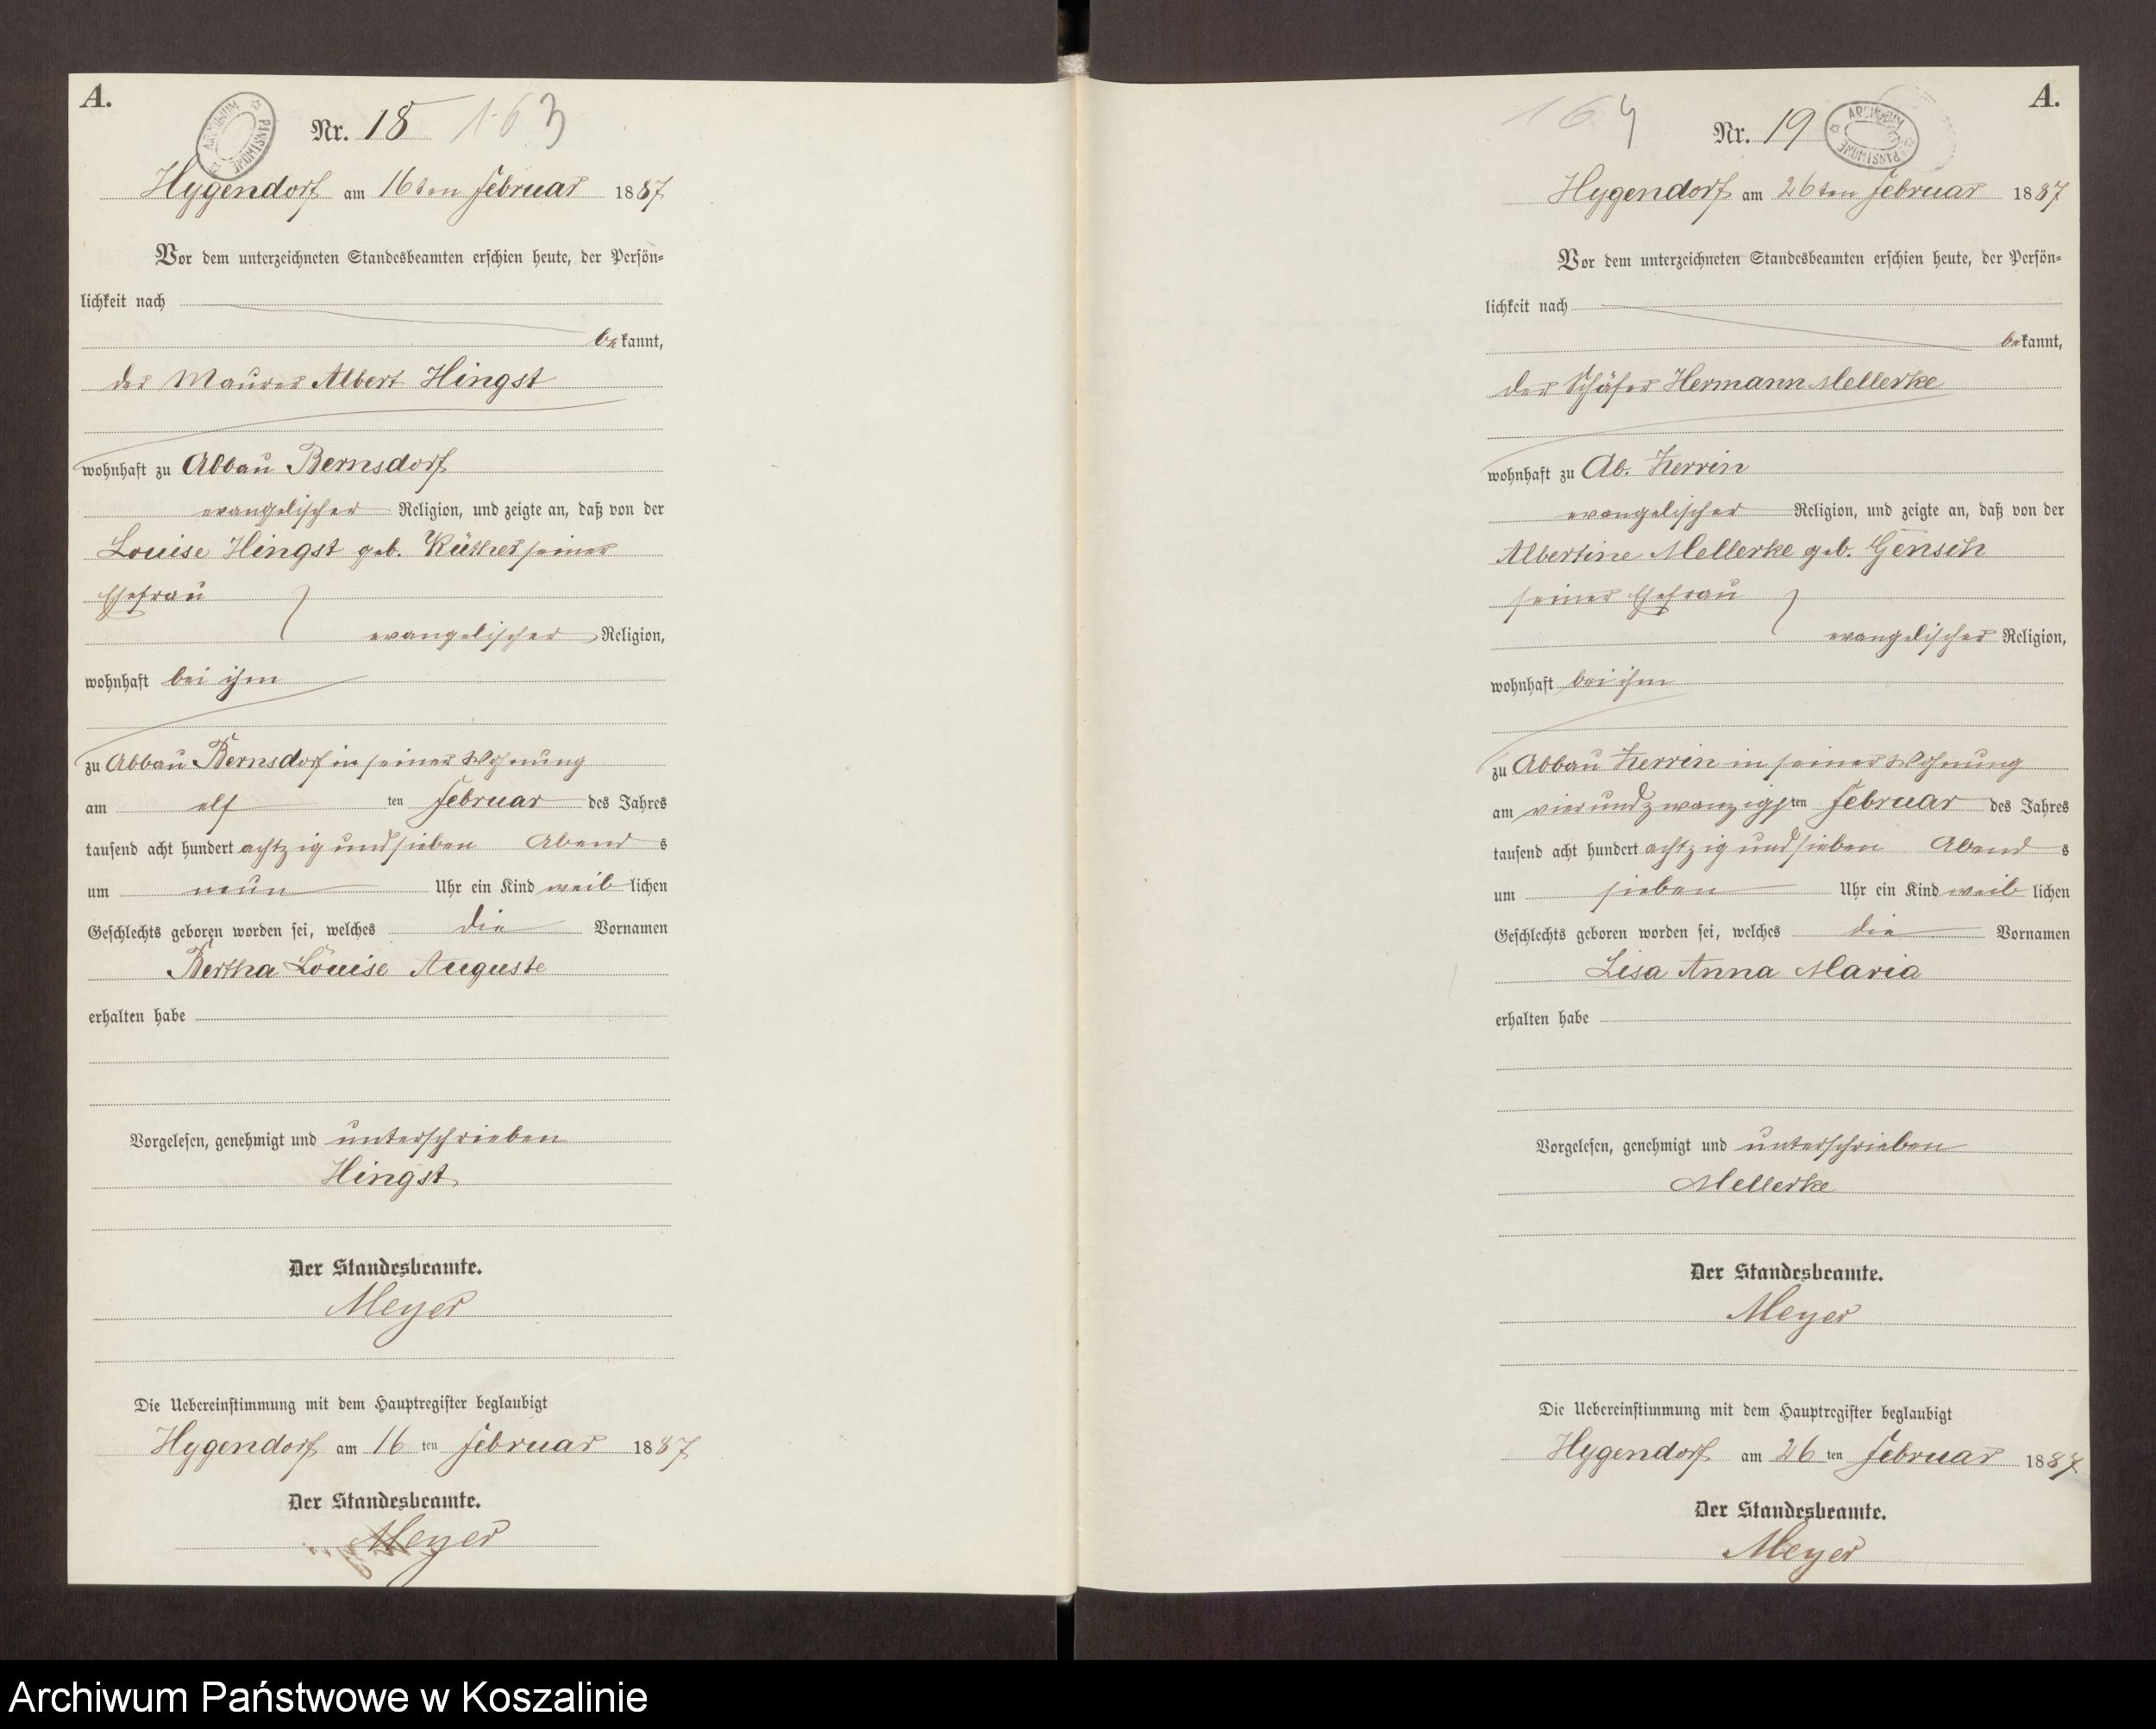 A.
ARCHIWUM PAŃSTWOWE
Nr. 18 163
Hygendorf am 16ten Februar 1887
Vor dem unterzeichneten Standesbeamten erschien heute, der Persön-
lichkeit nach
bekannt,
der Maurer Albert Hingst
wohnhaft zu Abbau Bernsdorf
evangelischer Religion, und zeigte an, daß von der
Louise Hingst geb. Rüther seiner
Ehefrau
evangelischer Religion,
wohnhaft bei ihm
zu Abbau Bernsdorf in seiner Wohnung
am elf ten Februar des Jahres
tausend acht hundert achtzig und sieben Abend s
um neun Uhr ein Kind weib lichen
Geschlechts geboren worden sei, welches die Vornamen
Bertha Louise Auguste
erhalten habe
Vorgelesen, genehmigt und unterschrieben
Hingst
Der Standesbeamte.
Meyer
Die Uebereinstimmung mit dem Hauptregister beglaubigt
Hygendorf am 16 ten Februar 1887
Der Standesbeamte.
Meyer
A.
164 Nr. 19
ARCHIWUM PAŃSTWOWE
Hygendorf am 26ten Februar 1887
Vor dem unterzeichneten Standesbeamten erschien heute, der Persön-
lichkeit nach
bekannt,
der Schäfer Hermann Mellerke
wohnhaft zu Ab. Zerrin
evangelischer Religion, und zeigte an, daß von der
Albertine Mellerke geb. Gensch
seiner Ehefrau
evangelischer Religion,
wohnhaft bei ihm
zu Abbau Zerrin in seiner Wohnung
am vierundzwanzigsten Februar des Jahres
tausend acht hundert achtzig und sieben Abend s
um sieben Uhr ein Kind weib lichen
Geschlechts geboren worden sei, welches die Vornamen
Lisa Anna Maria
erhalten habe
Vorgelesen, genehmigt und unterschrieben
Mellerke
Der Standesbeamte.
Meyer
Die Uebereinstimmung mit dem Hauptregister beglaubigt
Hygendorf am 26 ten Februar 1887
Der Standesbeamte.
Meyer
Archiwum Państwowe w Koszalinie